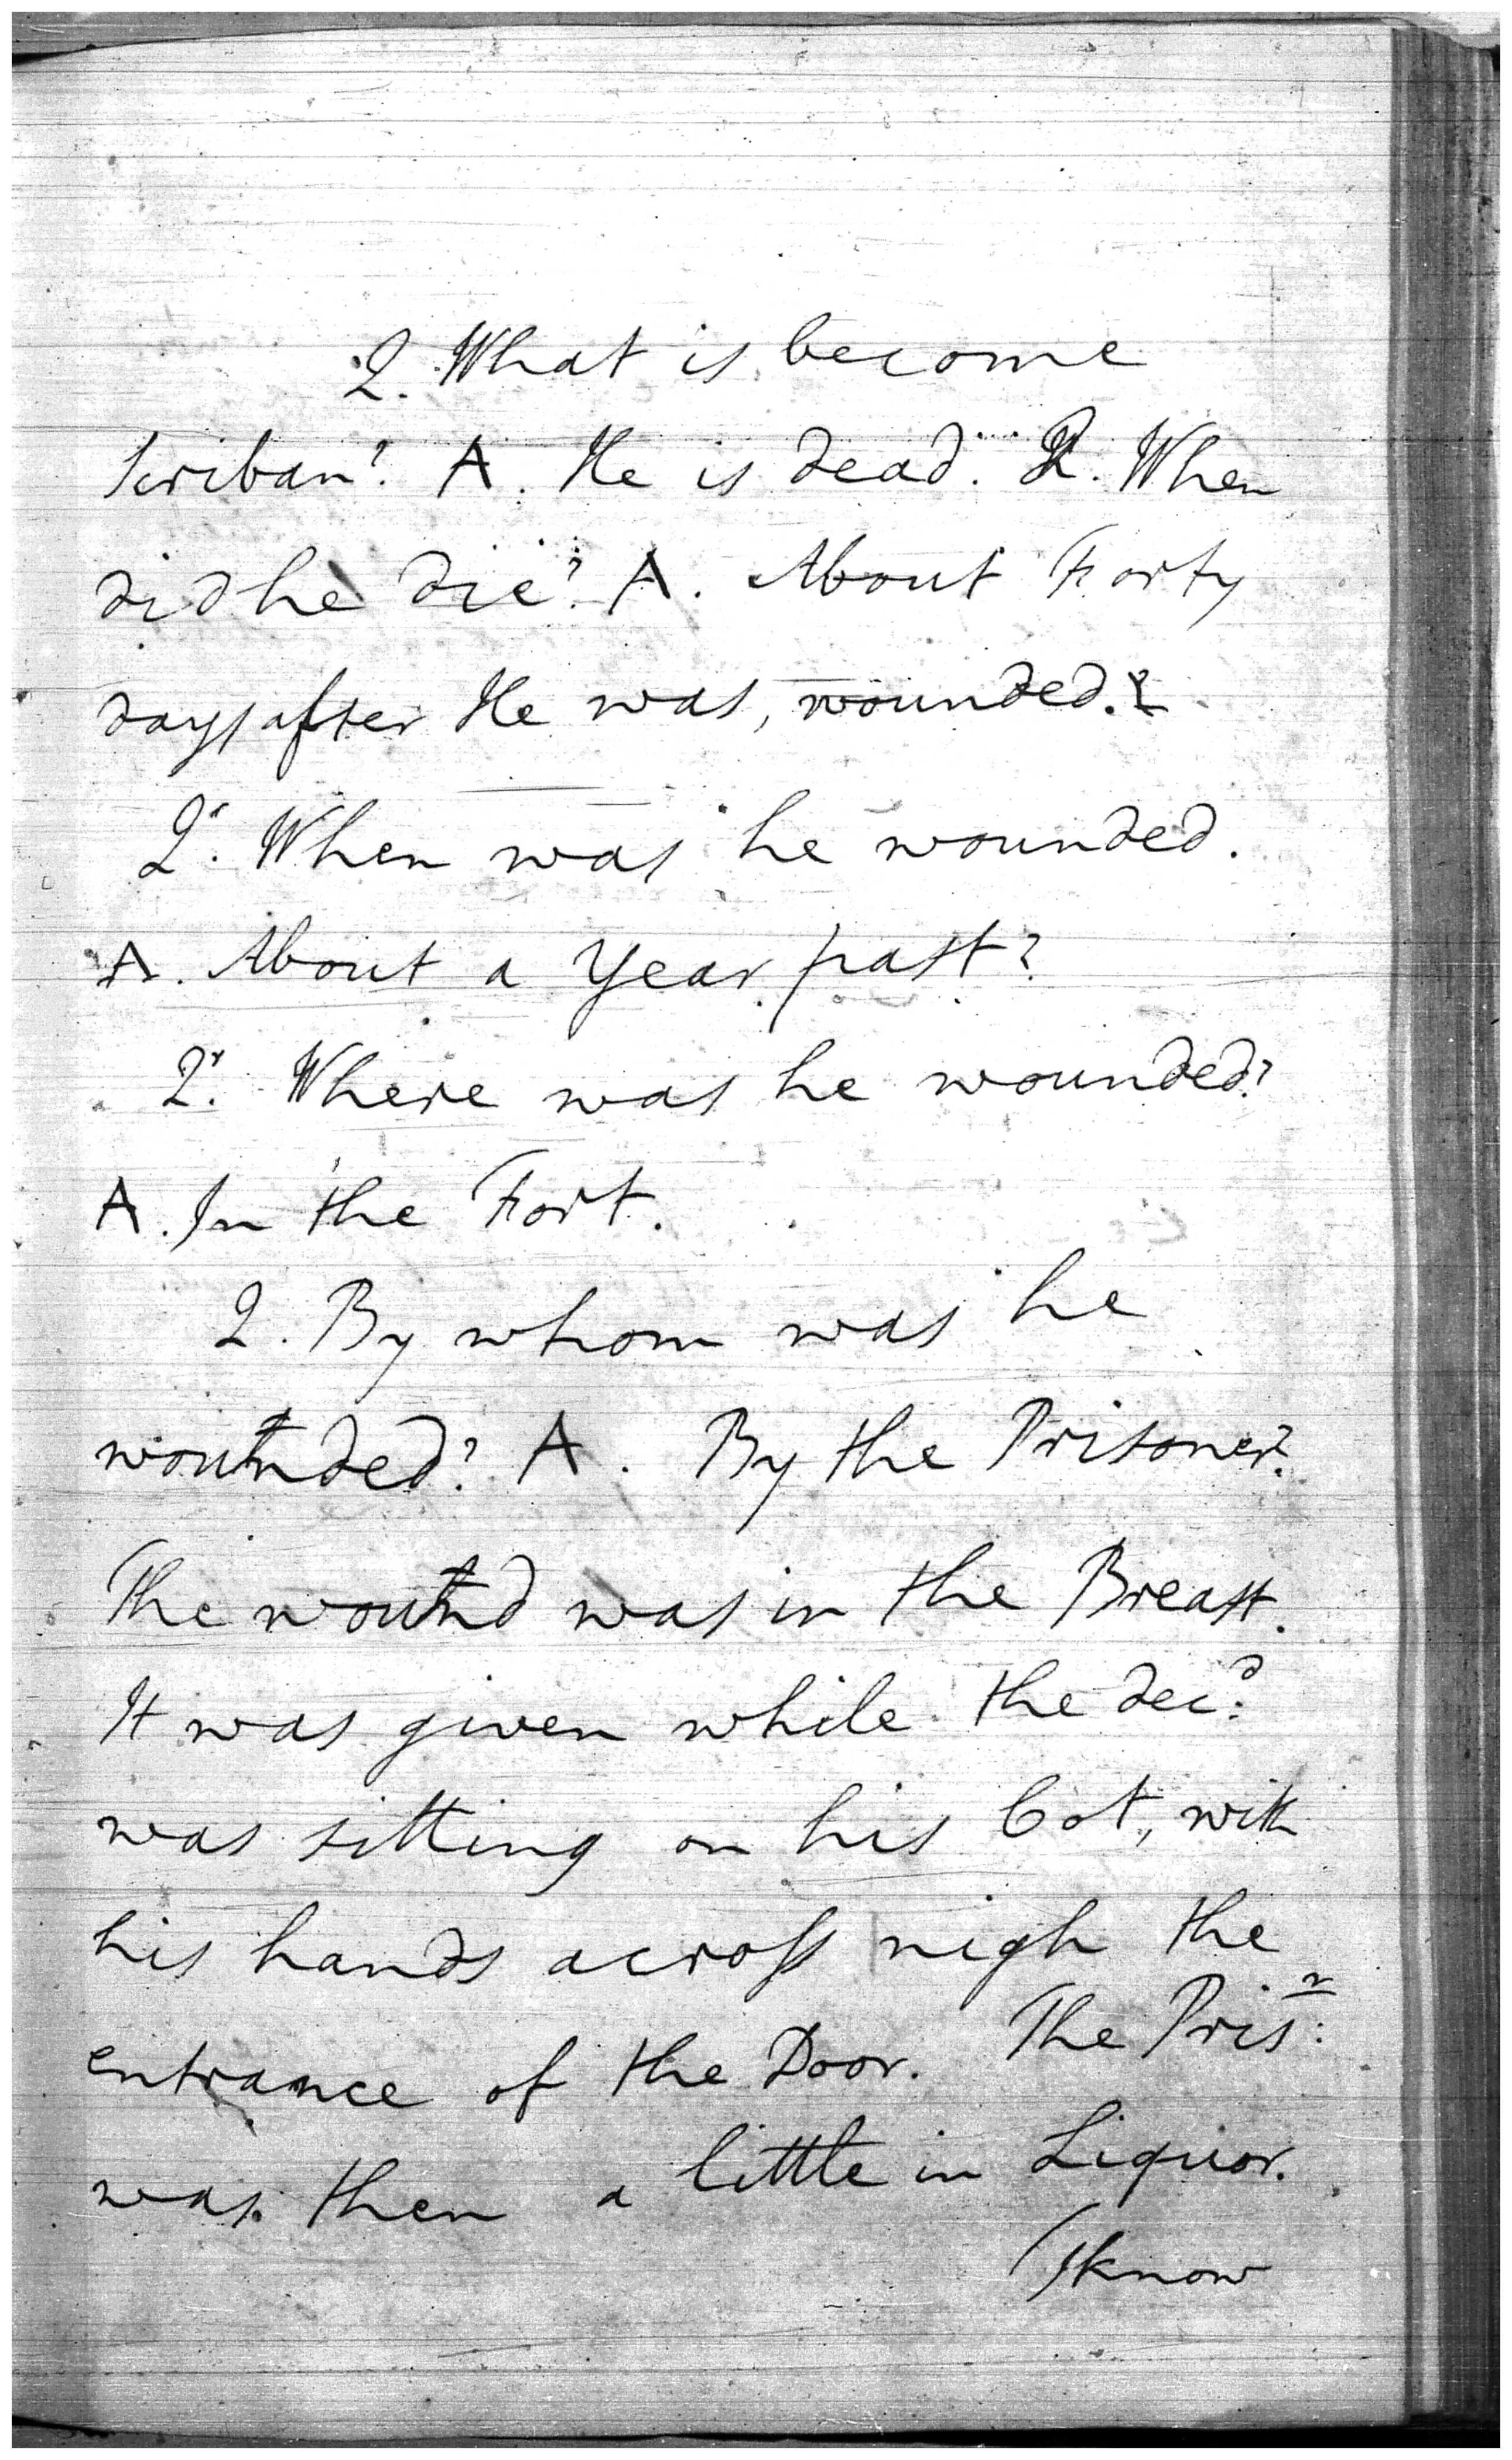 Q. What is become
Scriban? A. He is dead. Q. When
did he die? A. About Forty
days after He was, wounded.
Qr. When was he wounded.
A. About a Year past?
Qr. Where was he wounded?
A. In the Fort.
Q. By whom was he
wounded? A. By the Prisoner?
The wound was in the Breast.
It was given while the decd:
was sitting on his Cot, with
his hands across nigh the
entrance of the Door. The Prisr:
was then a little in Liquor.
I know